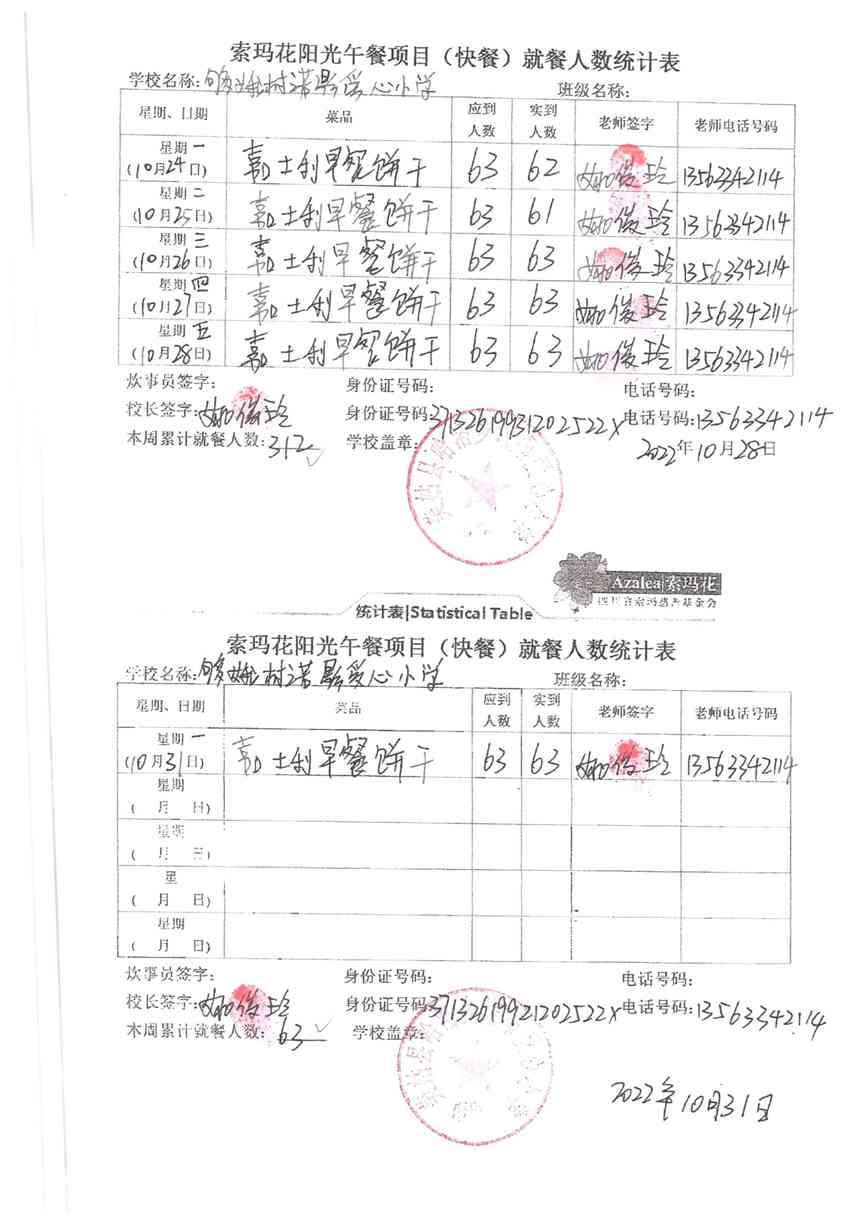 索玛花阳光午餐项目（快餐）就餐人数统计表
学校名称: 村诺 爱心小学 班级名称:
星期、日期 菜品 应到人数 实到人数 老师签字 老师电话号码
星期一 (10月24日) 嘉士利早餐饼干 63 62 13563342114
星期二 (10月25日) 嘉士利早餐饼干 63 61 13563342114
星期三 (10月26日) 嘉士利早餐饼干 63 63 13563342114
星期四 (10月27日) 嘉士利早餐饼干 63 63 13563342114
星期五 (10月28日) 嘉士利早餐饼干 63 63 13563342114
炊事员签字: 身份证号码: 电话号码:
校长签字: 身份证号码: 电话号码:13563342114
本周累计就餐人数:312 学校盖章: 2022年10月28日
Azalea|索玛花
四川省索玛慈善基金会
统计表|Statistical Table
索玛花阳光午餐项目（快餐）就餐人数统计表
学校名称: 村诺 爱心小学 班级名称:
星期、日期 菜品 应到人数 实到人数 老师签字 老师电话号码
星期一 (10月31日) 嘉士利早餐饼干 63 63 13563342114
星期 ( 月 日)
星期 ( 月 日)
星 ( 月 日)
星期 ( 月 日)
炊事员签字: 身份证号码: 电话号码:
校长签字: 身份证号码: 电话号码:13563342114
本周累计就餐人数: 63 学校盖章:
2022年10月31日